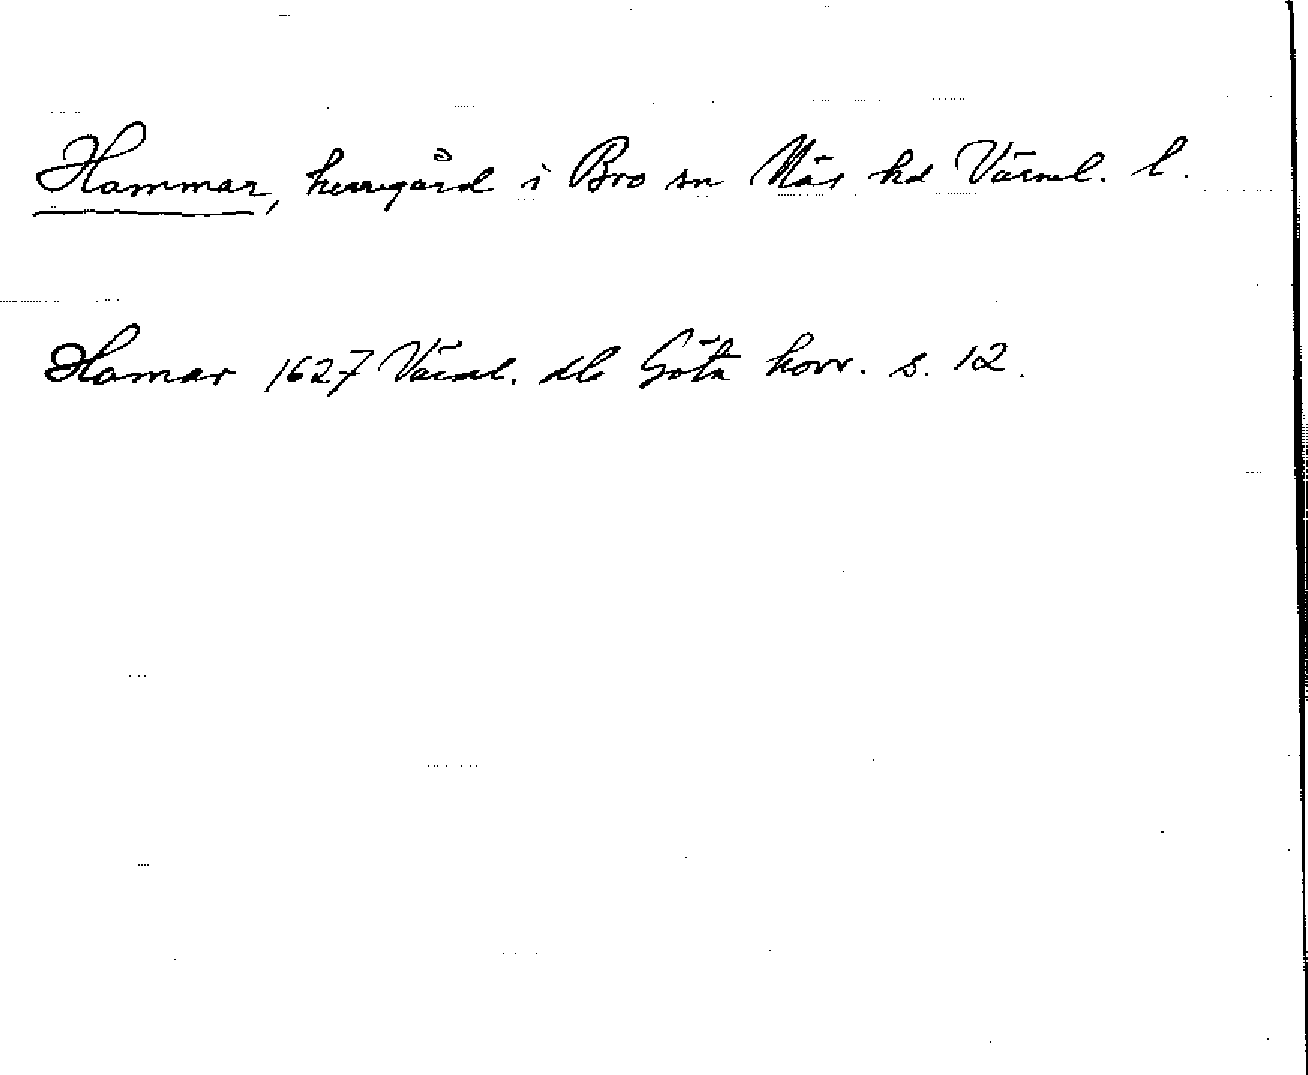 Hammar, herrgård i Bro sn Näs hd Värml. l.
Hamar 1627 Värml. db Göta hovr. s. 12.